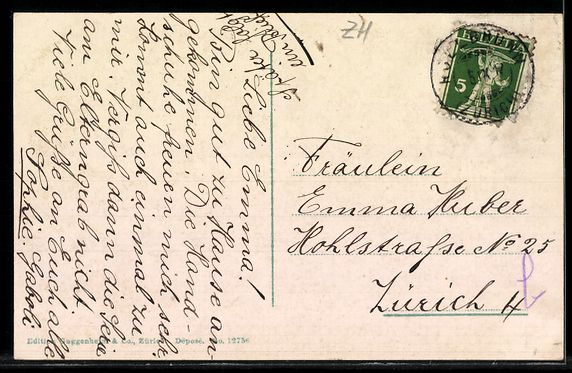 Später folgt
ein Brief
Liebe Emma!
Bin gut zu Hause an-
gekommen. Die Hand-
schuhe freuen mich sehr
Kommt auch einmal zu
mir. Vergiß dann die
am Elterngrab nicht
Viele Grüße an Euch alle
Sophie
ZH
5
Fräulein
Emma Huber
Hohlstraße No 25
Zürich 4
Edition Guggenheim & Co., Zürich. Déposé. No. 12756